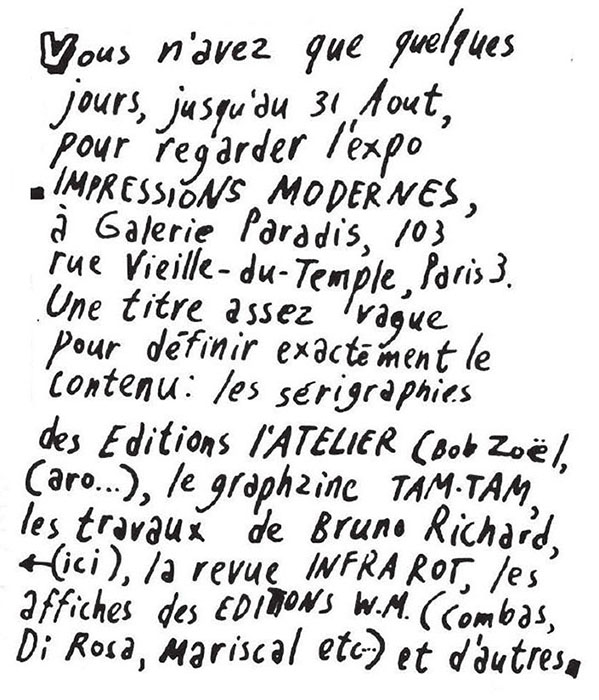 Vous n'avez que quelques
jours, jusqu'au 31 Aout,
pour regarder l'expo
IMPRESSIONS MODERNES,
à Galerie Paradis, 103
rue Vieille-du-Temple, Paris 3.
Une titre assez vague
pour définir exactement le
contenu: les sérigraphies
des Editions l'ATELIER (Bob Zoël,
Caro...), le graphzine TAM-TAM,
les travaux de Bruno Richard,
←(ici), la revue INFRAROT, les
affiches des EDITIONS W.M. (Combas,
Di Rosa, Mariscal etc..) et d'autres.